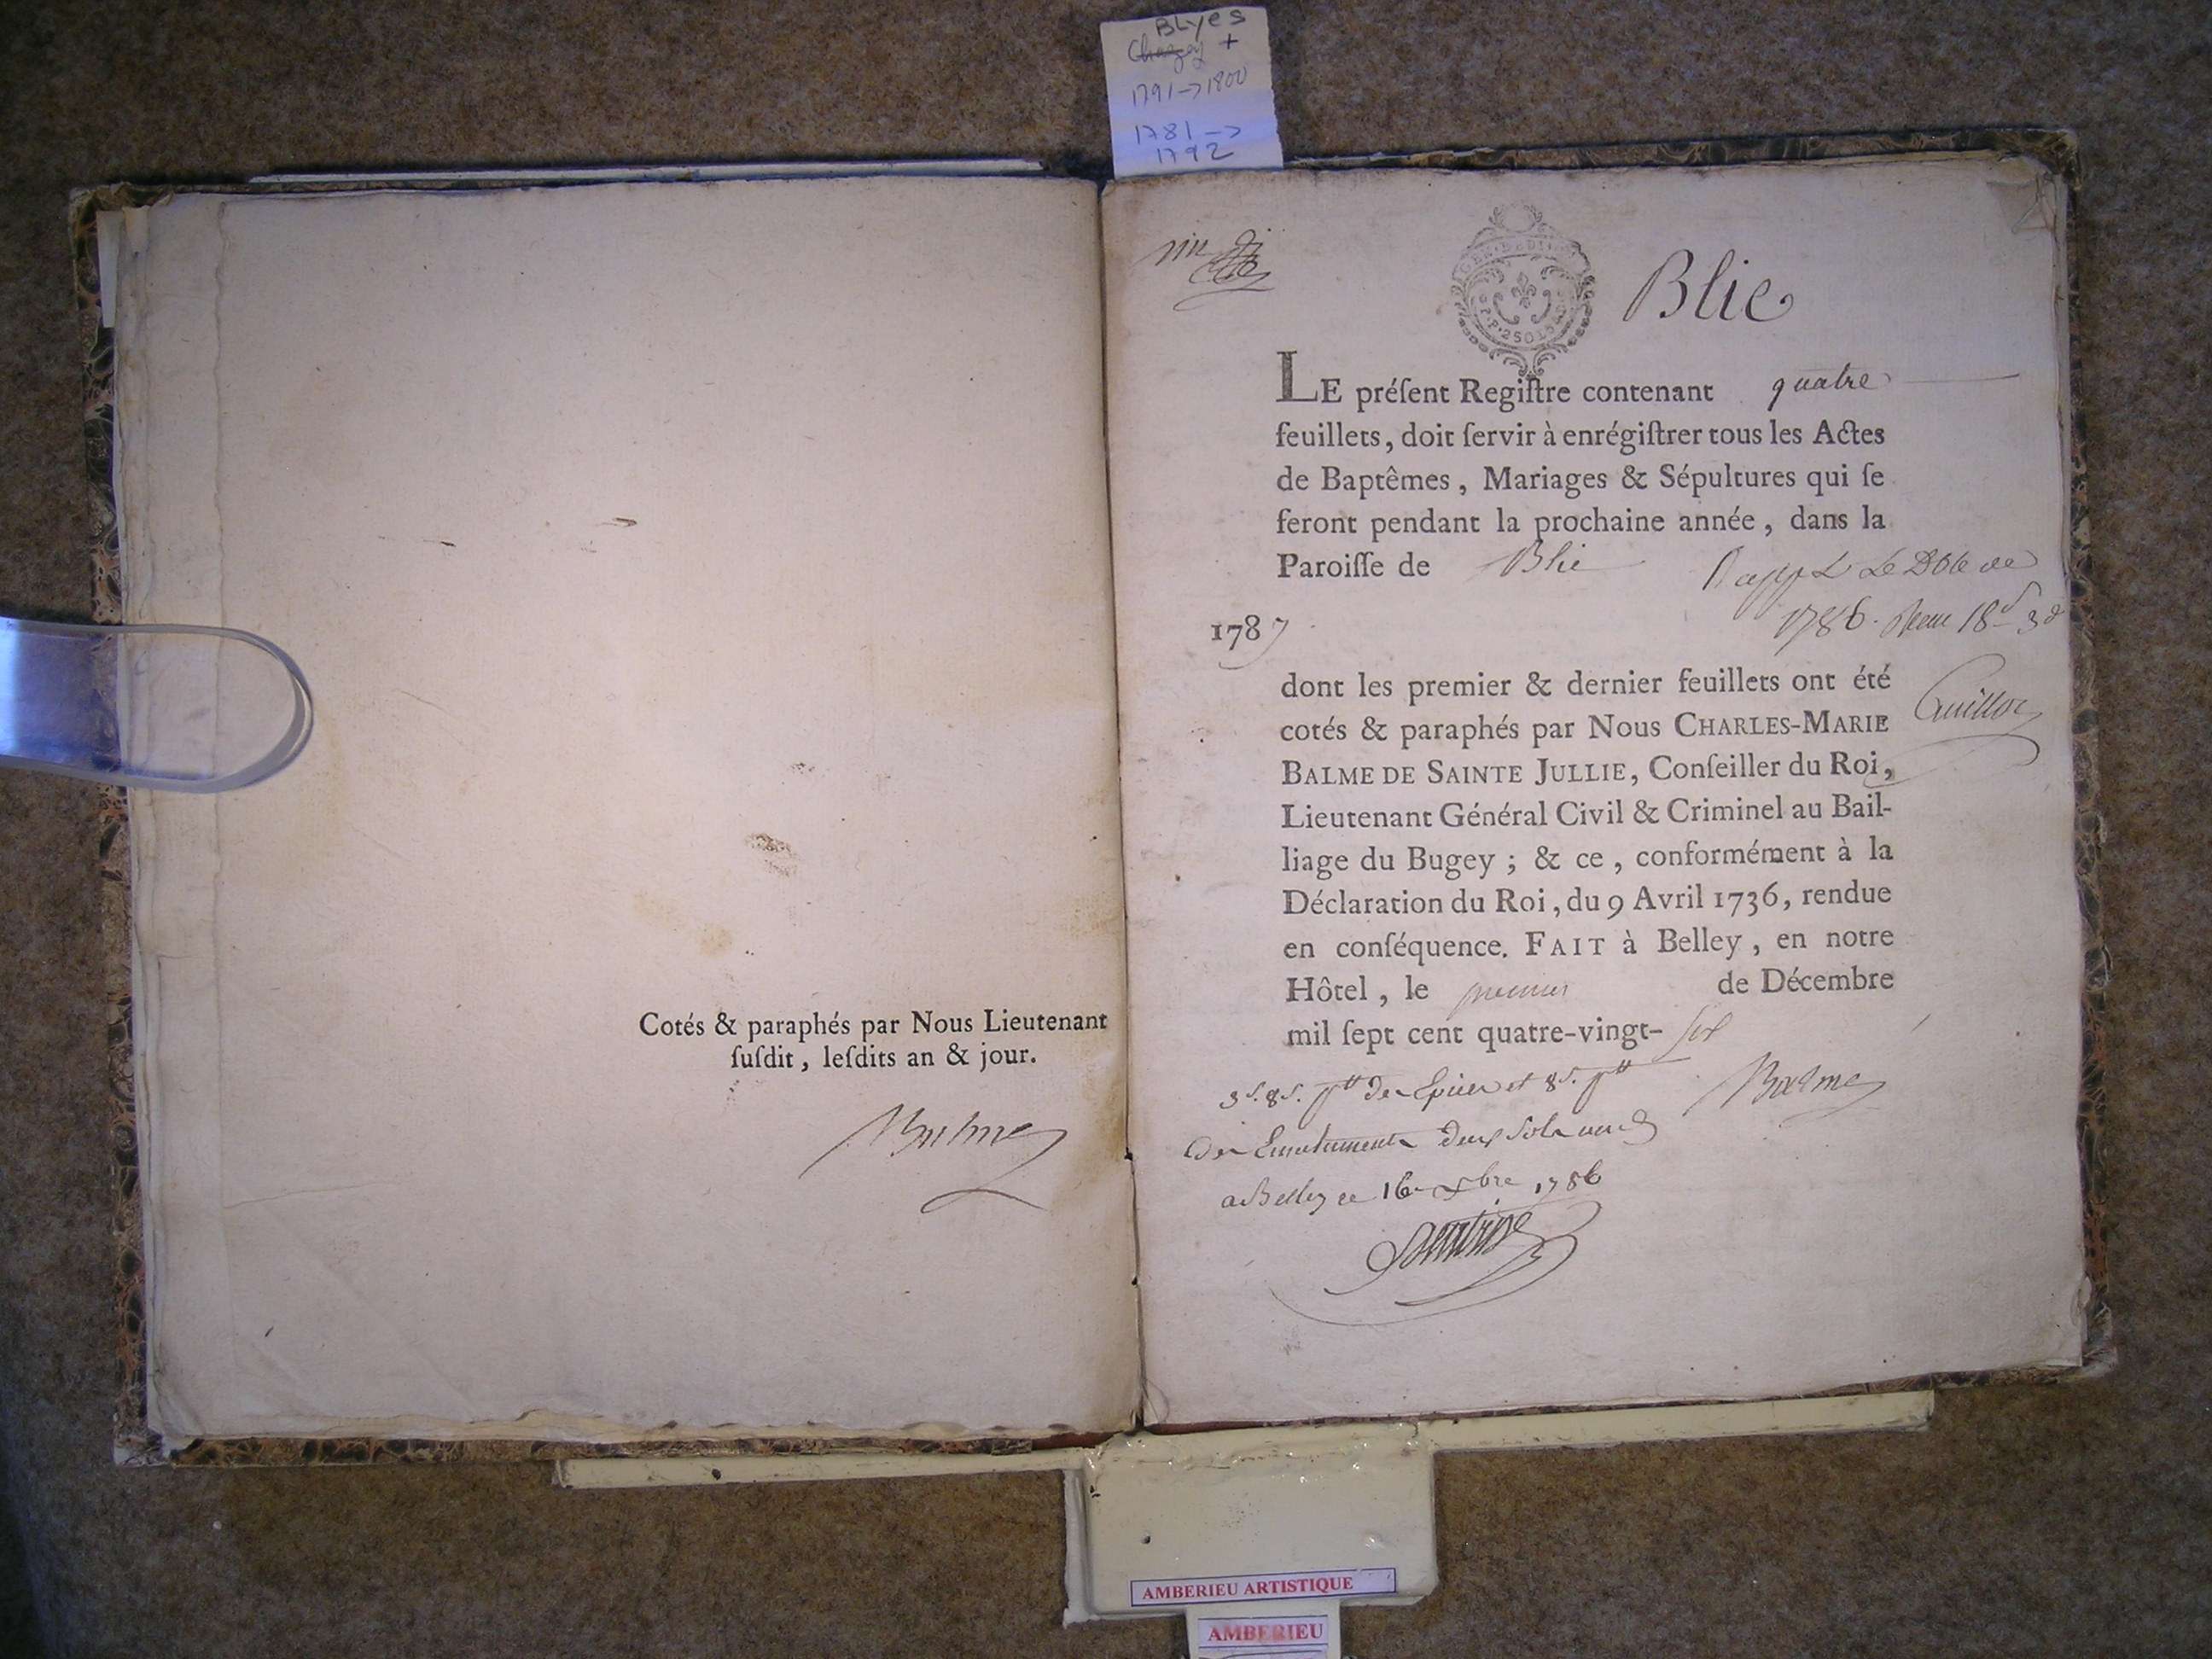 BLyes
Chazey +
1791->1800
1781->
1792
Cotés & paraphés par Nous Lieutenant
ſuſdit, leſdits an & jour.
Balme
Blie
LE préſent Regiſtre contenant quatre
feuillets, doit ſervir à enrégiſtrer tous les Actes
de Baptêmes, Mariages & Sépultures qui ſe
feront pendant la prochaine année, dans la
Paroiſſe de Blie
1786.
1787
dont les premier & dernier feuillets ont été
cotés & paraphés par Nous CHARLES-MARIE
BALME DE SAINTE JULLIE, Conſeiller du Roi,
Lieutenant Général Civil & Criminel au Bail-
liage du Bugey; & ce, conformément à la
Déclaration du Roi, du 9 Avril 1736, rendue
en conſéquence. FAIT à Belley, en notre
Hôtel, le premier de Décembre
mil ſept cent quatre-vingt-six
3s. 8d. pr des Epices et 8d. pr
Balme
des Emoluments deux sols
a Belley ce 16 xbre 1786
AMBERIEU ARTISTIQUE
AMBERIEU